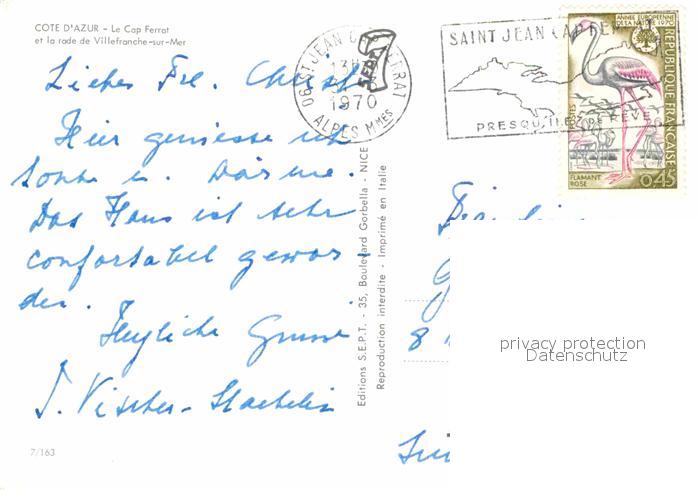 COTE D'AZUR - Le Cap Ferrat
et la rade de Villefranche-sur-Mer
Liebes Frl. Christ
Hier geniesse ich
Sonne u. Wärme.
Das Haus ist sehr
confortabel gewor
den.
Herzliche Grüsse
J. Vischer-Staehelin
7/163
Editions S.E.P.T. - 35, Boulevard Gorbella - NICE
Reproduction interdite - Imprimé en Italie
06 ST JEAN CAP FERRAT
13H
1970
ALPES MMES
SAINT JEAN CAP FERRAT
PRESQU'ILE DE REVE
ANNÉE EUROPÉENNE
DE LA NATURE 1970
REPUBLIQUE FRANÇAISE
POSTES
FLAMANT
ROSE
0,45
Fräulein
G
8
privacy protection
Datenschutz